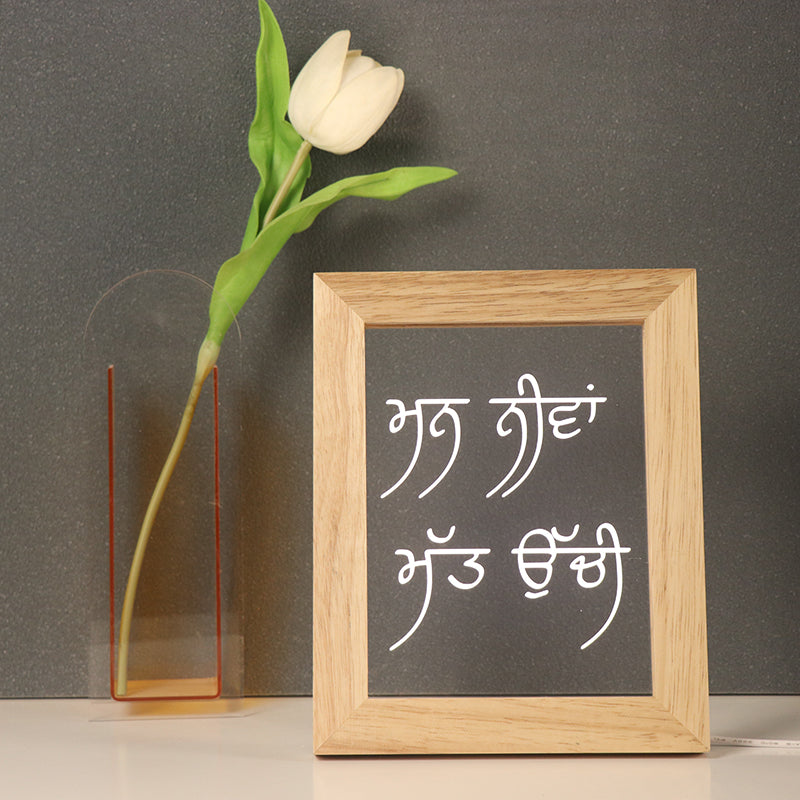 ਮਨ ਨੀਵਾਂ
ਮੱਤ ਉੱਚੀ